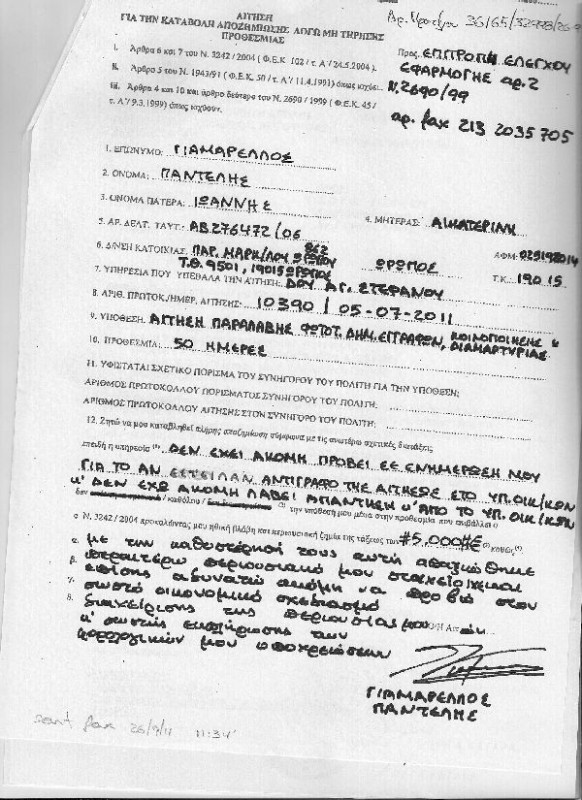 ΑΙΤΗΣΗ
ΓΙΑ ΤΗΝ ΚΑΤΑΒΟΛΗ ΑΠΟΖΗΜΙΩΣΗΣ ΛΟΓΩ ΜΗ ΤΗΡΗΣΗΣ
ΠΡΟΘΕΣΜΙΑΣ
i. Άρθρα 6 και 7 του Ν. 3242 / 2004 ( Φ.Ε.Κ. 102 / τ. Α' / 24.5.2004 ).
ii. Άρθρο 5 του Ν. 1943/91 ( Φ.Ε.Κ. 50 / τ. Α'/ 11.4.1991) όπως ισχύει.
iii. Άρθρα 4 και 10 και άρθρο δεύτερο του Ν. 2690 / 1999 ( Φ.Ε.Κ. 45 /
τ. Α'/ 9.3.1999) όπως ισχύουν.
Αρ. Πρωτ/ου 36/65/
Προς. ΕΠΙΤΡΟΠΗ ΕΛΕΓΧΟΥ
ΕΦΑΡΜΟΓΗΣ αρ. 2
Ν. 2690/99
αρ. fax 213 2035705
1. ΕΠΩΝΥΜΟ: ΓΙΑΜΑΡΕΛΛΟΣ
2. ΟΝΟΜΑ: ΠΑΝΤΕΛΗΣ
3. ΟΝΟΜΑ ΠΑΤΕΡΑ: ΙΩΑΝΝΗΣ 4. ΜΗΤΕΡΑΣ: ΑΙΚΑΤΕΡΙΝΗ
5. ΑΡ. ΔΕΛΤ. ΤΑΥΤ.: ΑΒ276472/06 ΑΦΜ: 025198014
6. Δ/ΝΣΗ ΚΑΤΟΙΚΙΑΣ: ΠΑΡ. ΜΑΡΚ/ΛΟΥ ΩΡΩΠΟΥ ΩΡΩΠΟΣ Τ.Κ. 190 15
Τ.Θ. 9501, 19015 ΩΡΩΠΟΣ
7. ΥΠΗΡΕΣΙΑ ΠΟΥ ΥΠΕΒΑΛΑ ΤΗΝ ΑΙΤΗΣΗ: ΔΟΥ ΑΓ. ΣΤΕΦΑΝΟΥ
8. ΑΡΙΘ. ΠΡΩΤΟΚ./ΗΜΕΡ. ΑΙΤΗΣΗΣ: 10390 / 05-07-2011
9. ΥΠΟΘΕΣΗ: ΑΙΤΗΣΗ ΠΑΡΑΛΑΒΗΣ ΦΩΤΟΤ. ΔΗΛ. ΕΓΓΡΑΦΩΝ, ΚΟΙΝΟΠΟΙΗΣΗΣ &
ΔΙΑΜΑΡΤΥΡΙΑΣ
10. ΠΡΟΘΕΣΜΙΑ: 50 ΗΜΕΡΕΣ
11. ΥΦΙΣΤΑΤΑΙ ΣΧΕΤΙΚΟ ΠΟΡΙΣΜΑ ΤΟΥ ΣΥΝΗΓΟΡΟΥ ΤΟΥ ΠΟΛΙΤΗ ΓΙΑ ΤΗΝ ΥΠΟΘΕΣΗ;
ΑΡΙΘΜΟΣ ΠΡΩΤΟΚΟΛΛΟΥ ΠΟΡΙΣΜΑΤΟΣ ΣΥΝΗΓΟΡΟΥ ΤΟΥ ΠΟΛΙΤΗ:
ΑΡΙΘΜΟΣ ΠΡΩΤΟΚΟΛΛΟΥ ΑΙΤΗΣΗΣ ΣΤΟΝ ΣΥΝΗΓΟΡΟ ΤΟΥ ΠΟΛΙΤΗ:
12. Ζητώ να μου καταβληθεί πλήρης αποζημίωση σύμφωνα με τις ανωτέρω σχετικές διατάξεις
επειδή η υπηρεσία ΔΕΝ ΕΧΕΙ ΑΚΟΜΗ ΠΡΟΒΕΙ ΣΕ ΕΝΗΜΕΡΩΣΗ ΜΟΥ
ΓΙΑ ΤΟ ΑΝ ΕΣΤΕΙΛΑΝ ΑΝΤΙΓΡΑΦΟ ΤΗΣ ΑΙΤΗΣΕΩΣ ΣΤΟ ΥΠ. ΟΙΚ/ΚΩΝ
κ' ΔΕΝ ΕΧΩ ΑΚΟΜΗ ΛΑΒΕΙ ΑΠΑΝΤΗΣΗ κ' ΑΠΟ ΤΟ ΥΠ. ΟΙΚ/ΚΩΝ
/ καθόλου / την υπόθεσή μου μέσα στην προθεσμία που
ο Ν. 3242 / 2004 προκαλώντας μου ηθική βλάβη και περιουσιακή ζημία της τάξεως των #5.000#€ καθώς
α. με την καθυστέρησή τους αυτή
β. περαιτέρω περιουσιακά μου στοιχεία
γ. επίσης αδυνατώ ακόμη να προβώ στον
σωστό οικονομικό σχεδιασμό
δ. διαχείρισης της περιουσίας μου
κ' σωστής εκπλήρωσης των
φορολογικών μου υποχρεώσεων
ΓΙΑΜΑΡΕΛΛΟΣ
ΠΑΝΤΕΛΗΣ
sent fax 26/9/11 11:34'